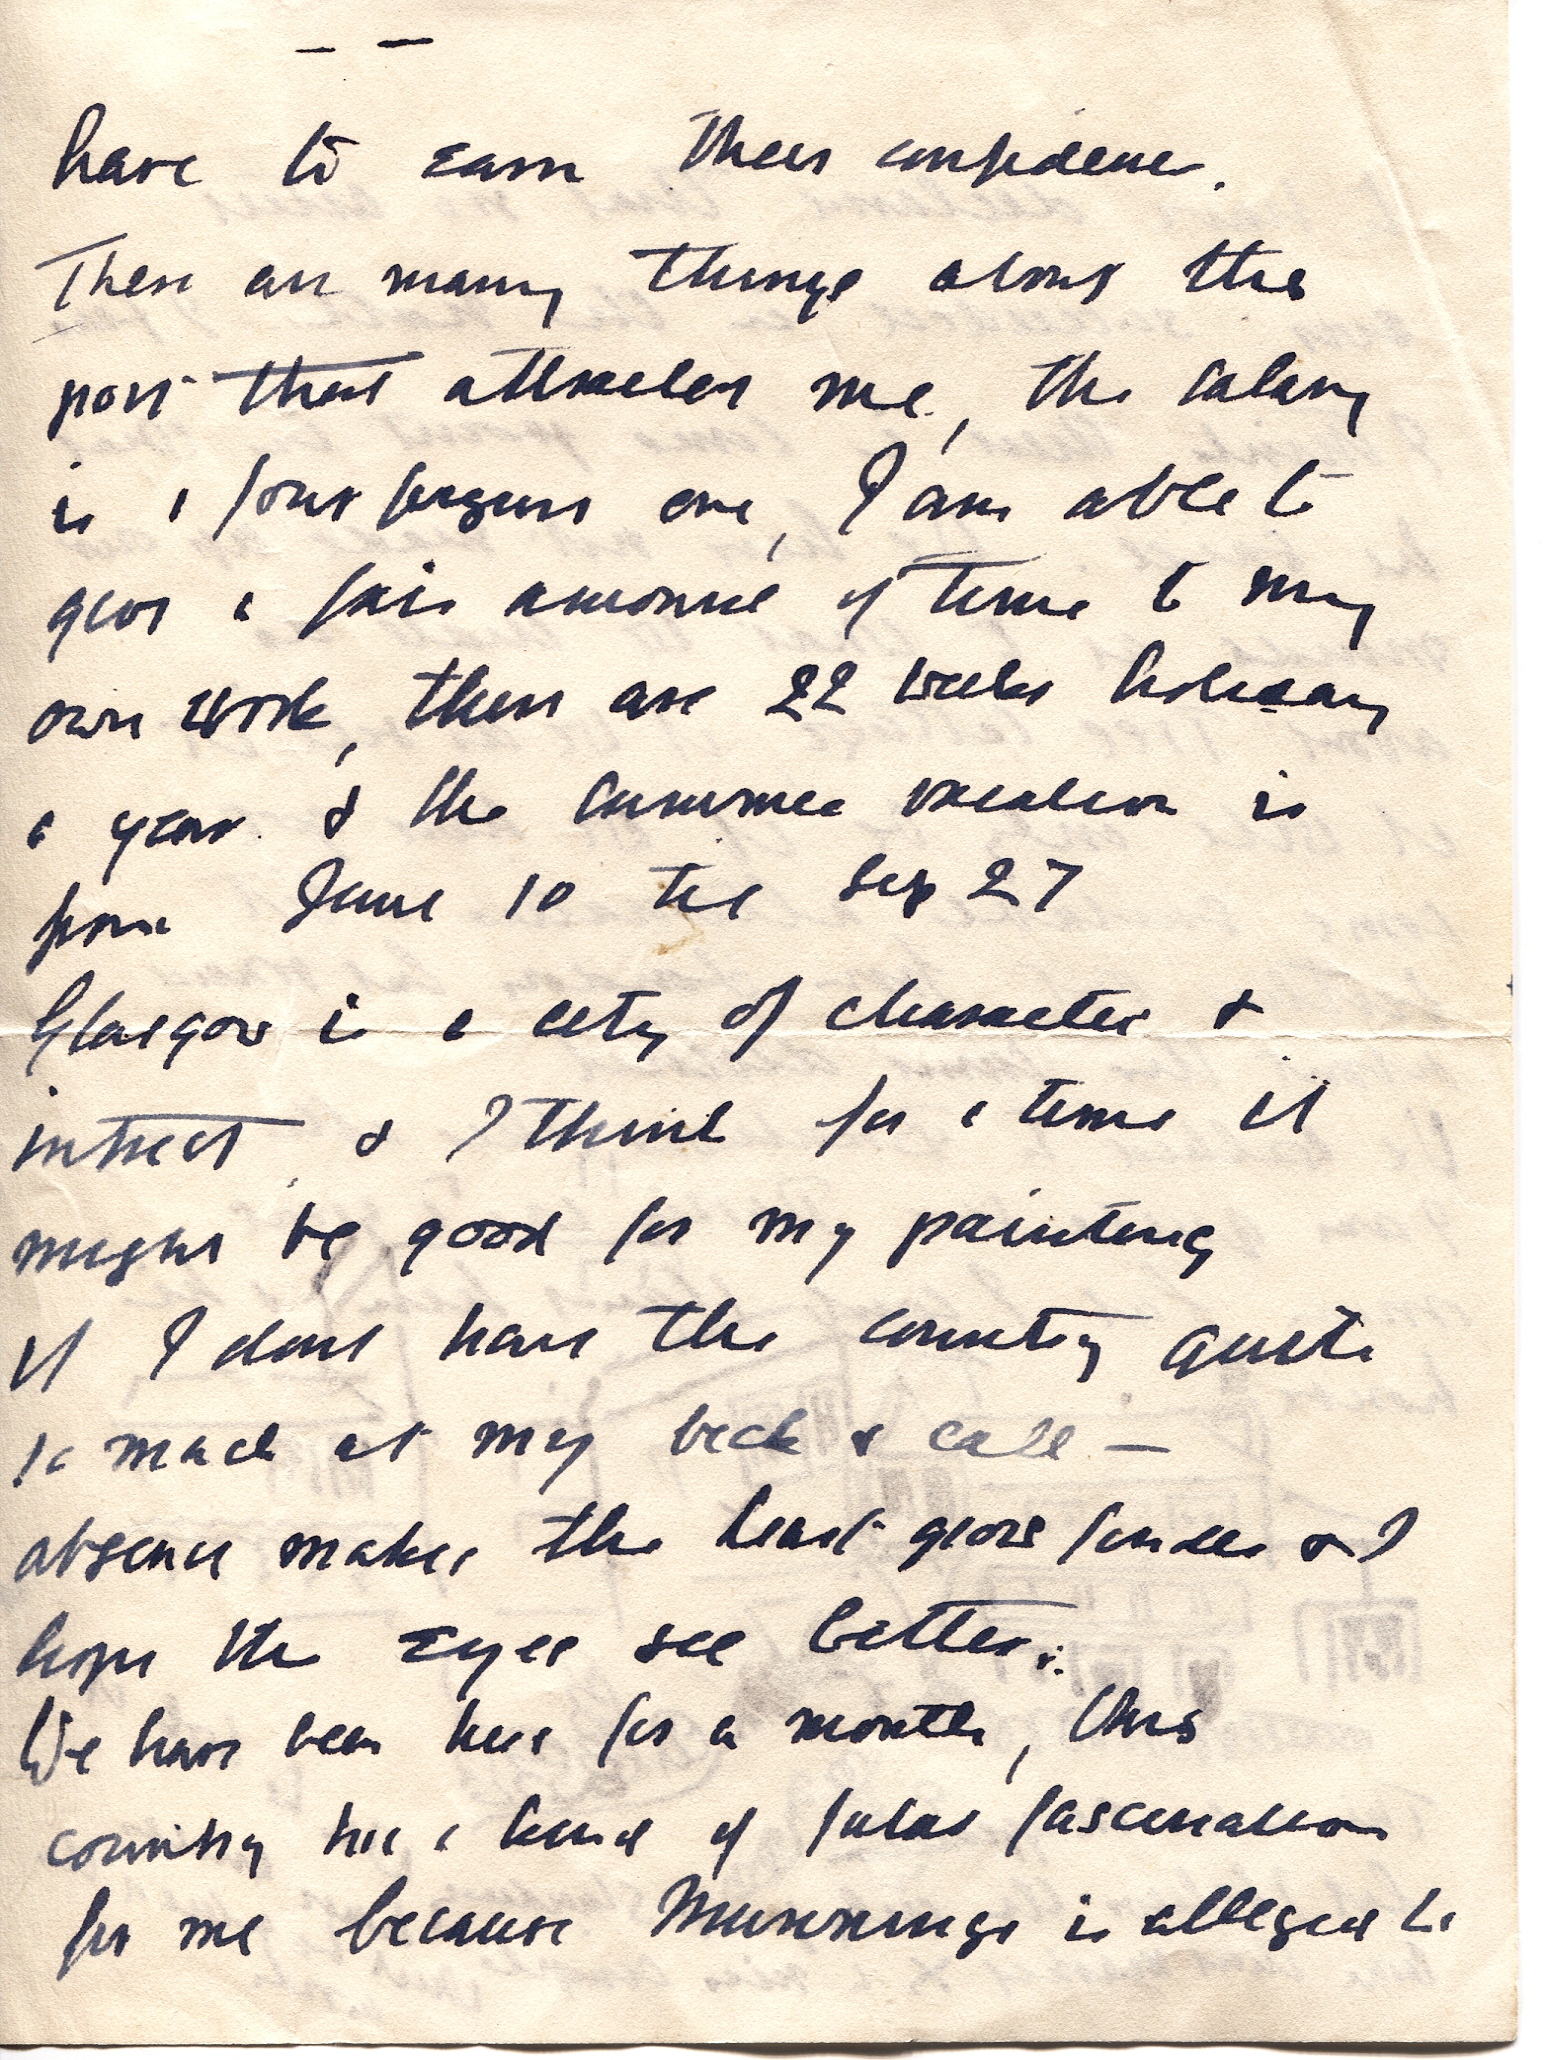 have to earn their confidence.
There are many things about the
post that attracted me, the salary
is a four figure one, I am able to
give a fair amount of time to my
own work, there are 22 weeks holiday
a year & the summer vacation is
from June 10 til Sep 27
Glasgow is a city of character &
interest, & I think for a time it
might be good for my painting
if I dont have the country quite
so much at my beck & call —
absence makes the heart grow fonder & I
hope the eyes see better.
We have been here for a month, this
country has a kind of fatal fascination
for me because Munnings is alleged to